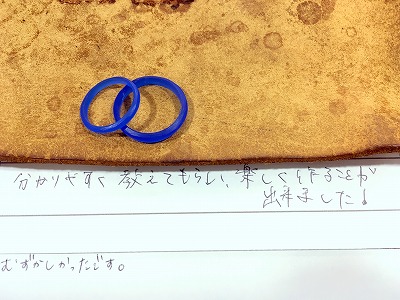 分かりやすく教えてもらい、楽しく作ることが
出来ました！
むずかしかったです。